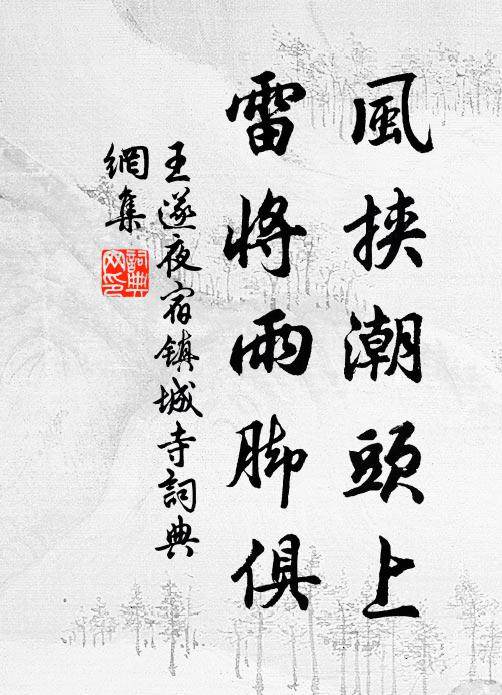 風挾潮頭上
雷將雨脚俱
王遂夜宿鎮城寺詞典
網集
詞典
网印